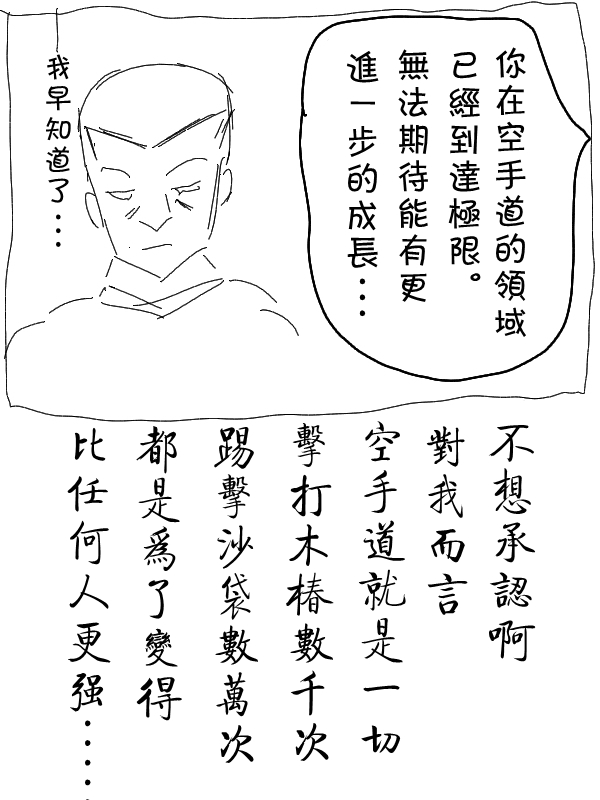 你在空手道的領域
已經到達極限。
無法期待能有更
進一步的成長…
我早知道了…
不想承認啊
對我而言
空手道就是一切
擊打木樁數千次
踢擊沙袋數萬次
都是為了變得
比任何人更强……